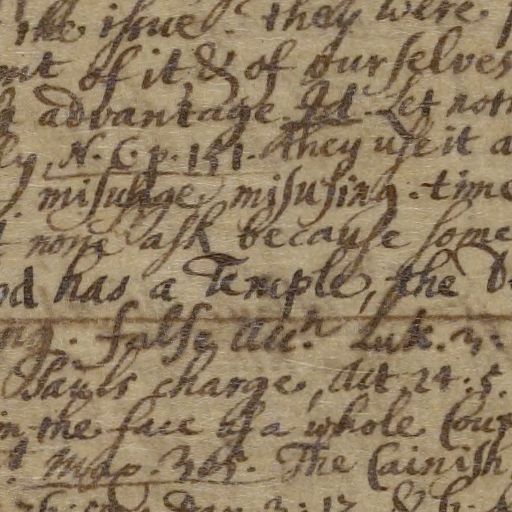 the issue. they were
out of it, & of our selves
advantage. Id. Let not
ly, N. C. p. 151. they use it a
misusage, misusing. time
none ask because some
od has a Temple, the D
ng. false Acc.n Luk. 3.
Sauls charge, Act. 24. 5.
in the face of a whole Cou
Map. 365. The Cainish